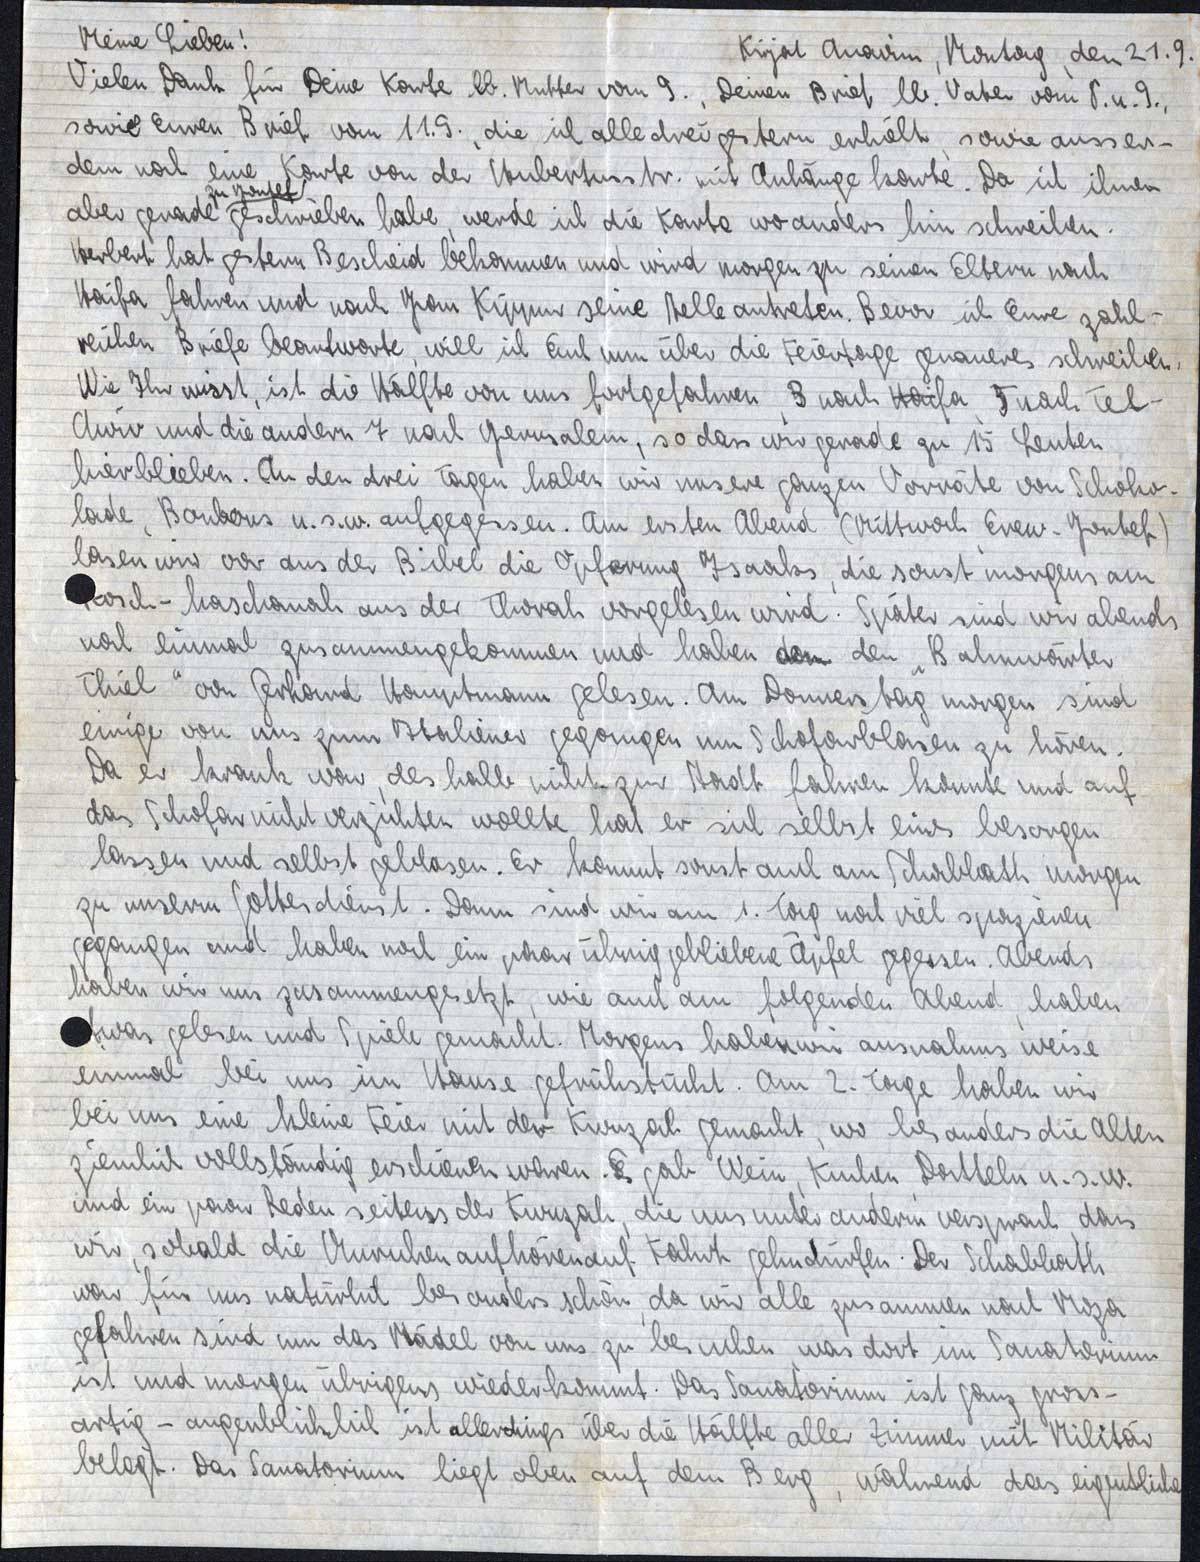 Meine Lieben!
Kirjat Anavim, Montag, den 21.9.
Vielen Dank für Deine Karte lb. Mutter vom 9., Deinen Brief lb. Vater vom 8. u. 9.,
sowie Euren Brief vom 11.9., die ich alle drei gestern erhielt, sowie ausser-
dem noch eine Karte von der Hubertusstr. mit Anhänge karte. Da ich ihnen
zu Jontef
aber gerade geschrieben habe, werde ich die Karte wo anders hin schreiben.
Herbert hat gestern Bescheid bekommen und wird morgen zu seinen Eltern nach
Haifa fahren und nach Jom Kippur seine Stelle antreten. Bevor ich Eure zahl-
reichen Briefe beantworte, will ich Euch nun über die Feiertage genaueres schreiben.
Wie Ihr wisst, ist die Hälfte von uns fortgefahren, 3 nach Haifa, 5 nach Tel-
Awiv und die andern 7 nach Jerusalem, so dass wir gerade zu 15 Leuten
hierblieben. An den drei Tagen haben wir unsere ganzen Vorräte von Schoko-
lade, Bonbons u.s.w. aufgegessen. Am ersten Abend (Mittwoch, Erew-Jontef)
lasen wir vor aus der Bibel die Opferung Isaaks, die sonst morgens am
Rosch-haschanah aus der Thorah vorgelesen wird. Später sind wir abends
noch einmal zusammengekommen und haben den „Bahnwärter
Thiel" von Gerhard Hauptmann gelesen. Am Donnerstag morgen sind
einige von uns zum Italiener gegangen um Schofarblasen zu hören.
Da er krank war, deshalb nicht zur Stadt fahren konnte und auf
das Schofar nicht verzichten wollte hat er sich selbst eins besorgen
lassen und selbst geblasen. Er kommt sonst auch am Schabbath morgen
zu unserm Gottesdienst. Dann sind wir am 1. Tag noch viel spazieren
gegangen und haben noch ein paar übriggebliebene Äpfel gegessen. Abends
haben wir uns zusammengesetzt, wie auch am folgenden Abend, haben
etwas gelesen und Spiele gemacht. Morgens haben wir ausnahms weise
einmal bei uns im Hause gefrühstückt. Am 2. Tage haben wir
bei uns eine kleine Feier mit der Kwuzah gemacht, wo besonders die Alten
ziemlich vollständig erschienen waren. Es gab Wein, Kuchen, Datteln u.s.w.
und ein paar Reden seitens der Kwuzah, die uns unter anderm versprach, dass
wir, sobald die Unruhen aufhören auf Fahrt gehn dürfen. Der Schabbath
war für uns natürlich besonders schön, da wir alle zusammen nach Moza
gefahren sind um das Mädel von uns zu besuchen was dort im Sanatorium
ist und morgen übrigens wiederkommt. Das Sanatorium ist ganz gross-
artig – augenblicklich ist allerdings über die Hälfte aller Zimmer mit Militär
belegt. Das Sanatorium liegt oben auf dem Berg, während das eigentliche